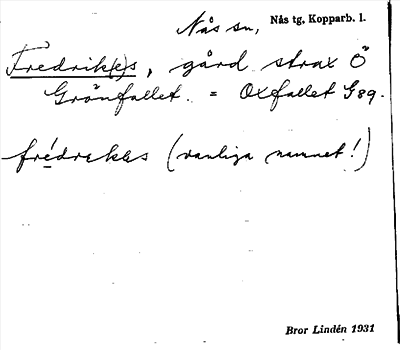 Nås sn, Nås tg, Kopparb. l.
Fredrik(e)s, gård strax Ö
Grönfallet. = Oxfallet G 89.
frédrekes (vanliga namnet!)
Bror Lindén 1931